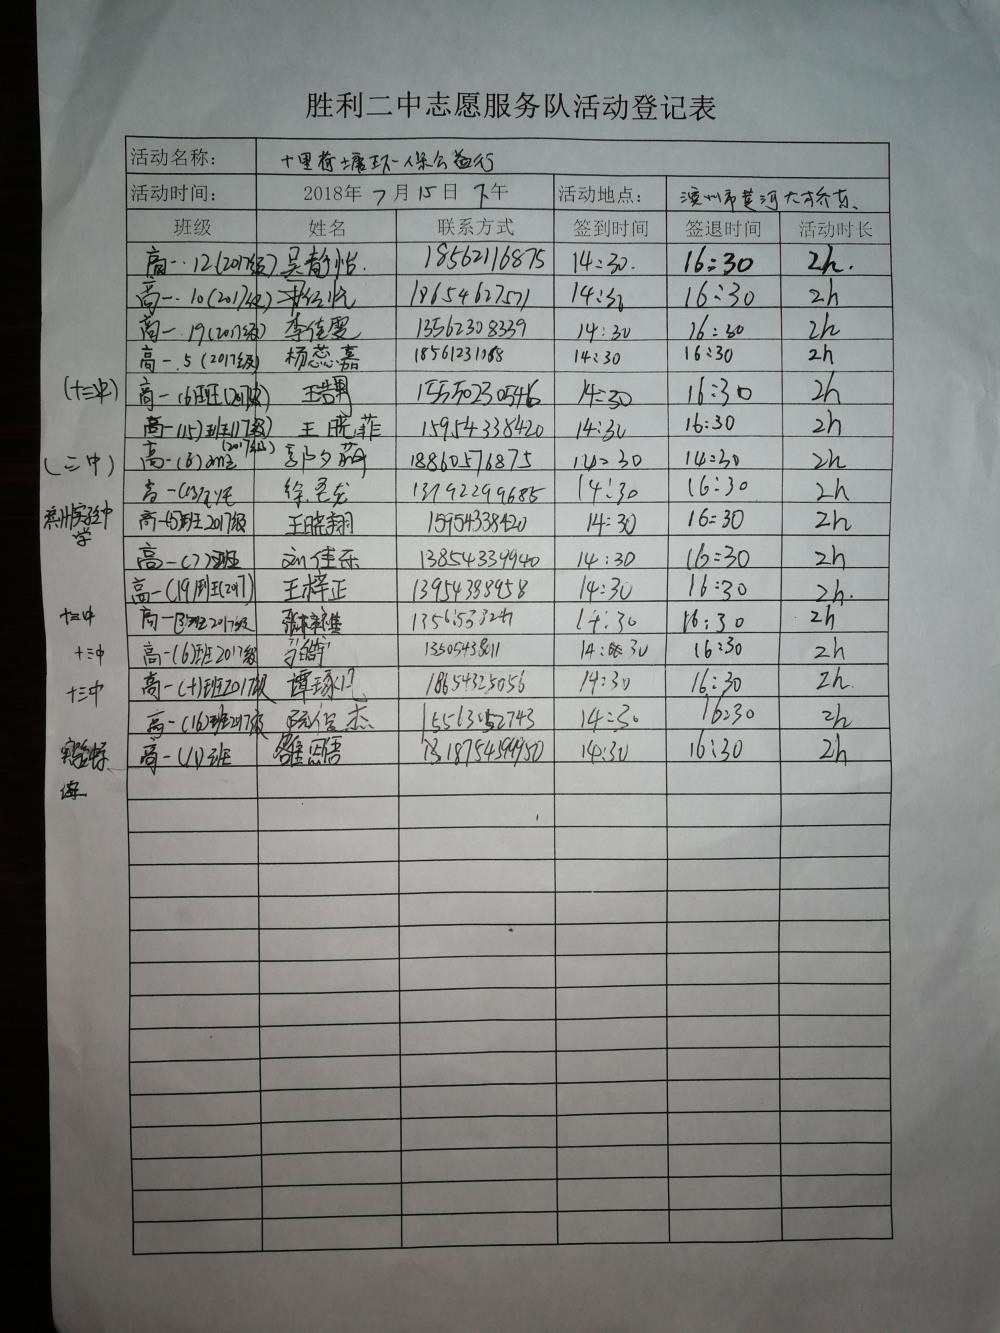 胜利二中志愿服务队活动登记表
活动名称： 十里荷塘环保公益行
活动时间： 2018年7月15日 下午 活动地点： 滨州市黄河大桥东
班级 姓名 联系方式 签到时间 签退时间 活动时长
高一.12(2017级) 吴静怡. 18562116875 14:30. 16:30 2h.
高一.10(2017级) 18654627571 14:30 16:30 2h
高一.19(2017级) 李佳雯 13562308339 14:30 16:30 2h
高一.5(2017级) 杨蕊嘉 14:30 16:30 2h
(十三中) 高一(6)班(2017级) 15550230546 14:30 16:30 2h
高一(15)班(17级) 王晓菲 15954338420 14:30 16:30 2h
(二中) 高一(6) (2017级) 18860576875 14:30 14:30 2h
高一(13) 徐圣龙 13792299685 14:30 16:30 2h
滨州实验中学 高一(5)班2017级 王晓翔 15954338420 14:30 16:30 2h
高一(7)班 刘佳乐 13854339940 14:30 16:30 2h
高一(19)班(2017) 王梓正 13954388958 14:30 16:30 2h.
十三中 高一 班2017级 14:30 16:30 2h
十三中 高一(6)班2017级 13505438011 14:30 16:30 2h
十三中 高一(十)班2017级 谭琢 18654325056 14:30 16:30 2h.
高一(16)班2017级 杰 15563152743 14:30 16:30 2h
高一(11)班 14:30 16:30 2h